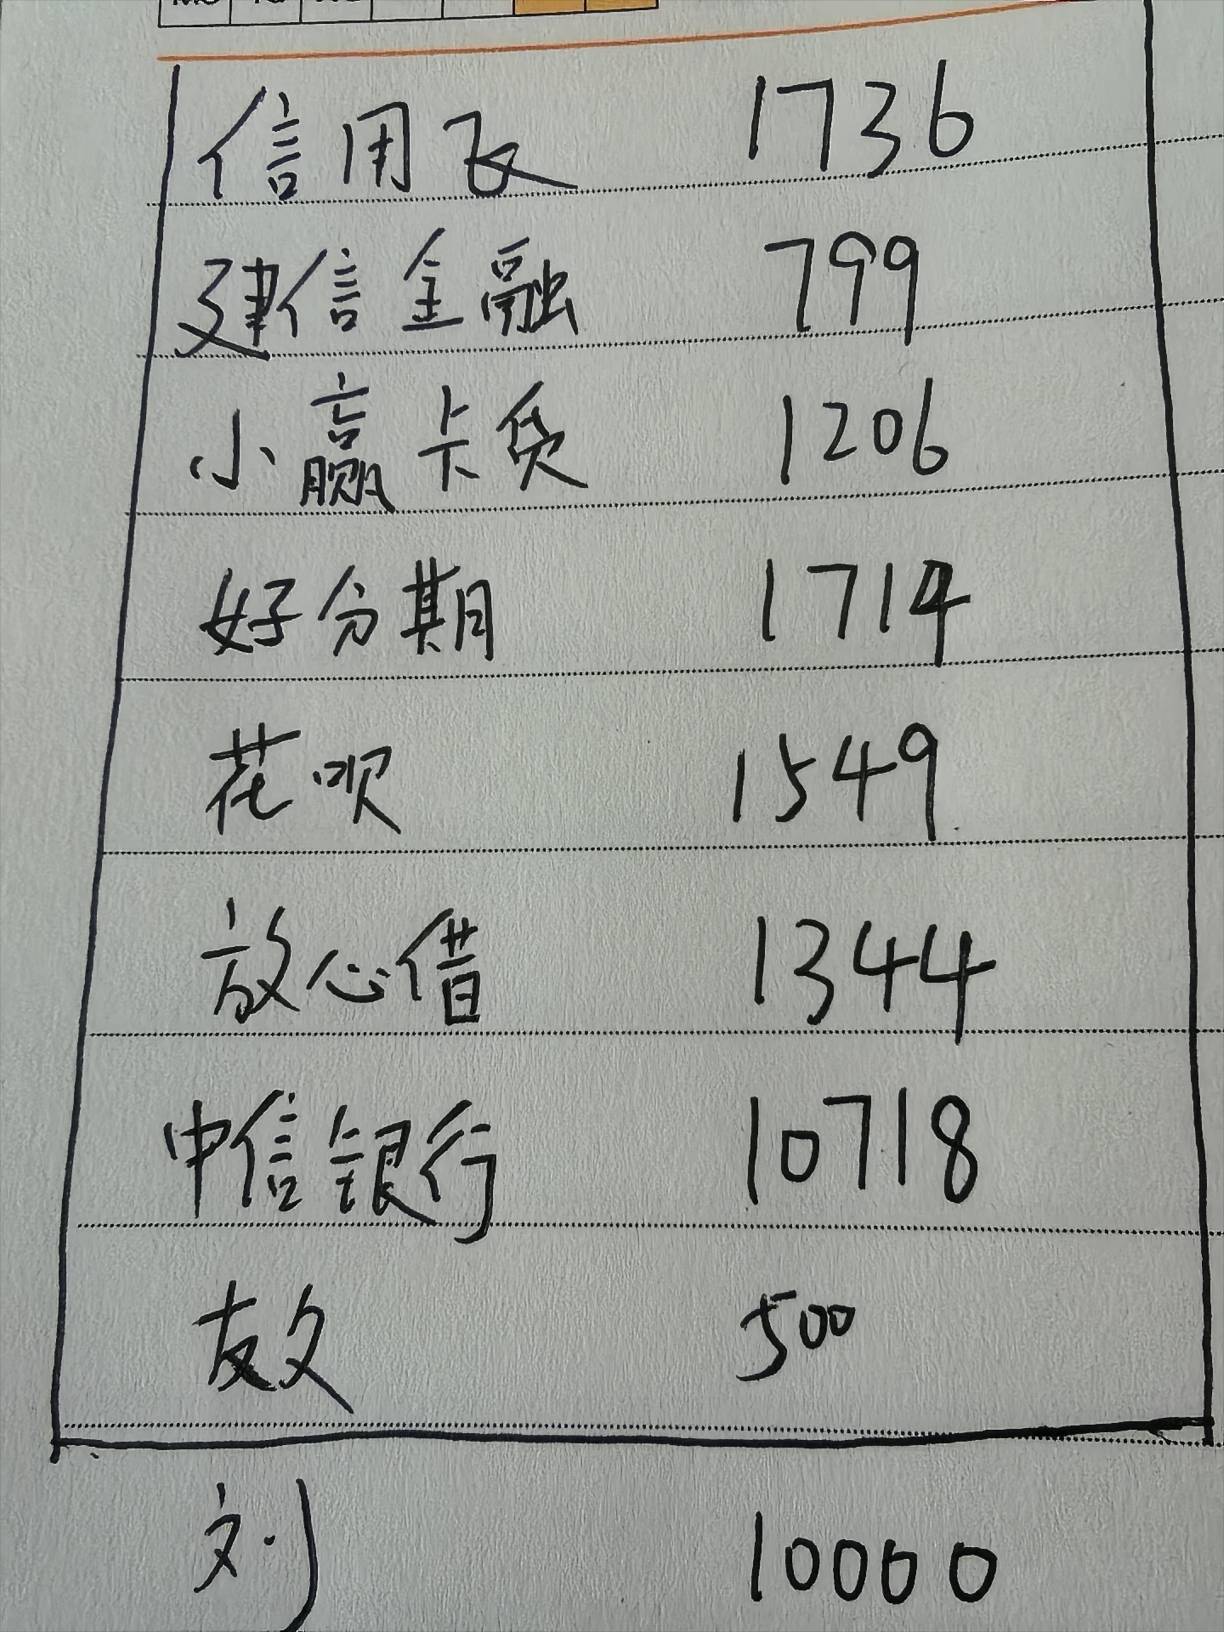 信用飞 1736
建信金融 799
小赢卡贷 1206
好分期 1714
花呗 1549
放心借 1344
中信银行 10718
友文 500
刘 10000